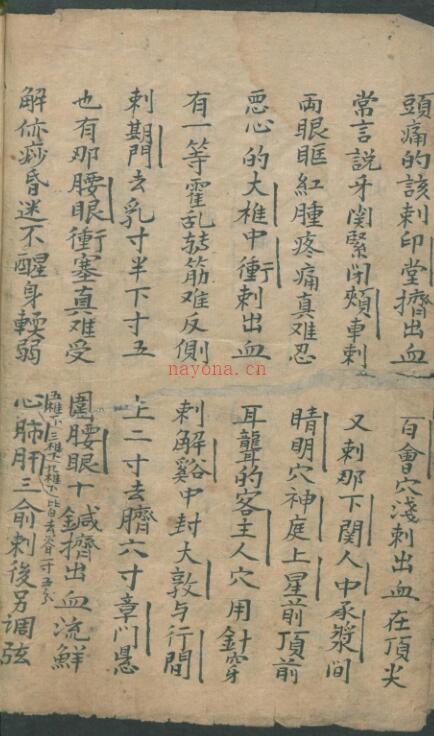 頭痛的該刺印堂擠出血 百會穴淺刺出血在頂尖
常言說牙関緊閉頰車刺 又刺那下関人中承漿間
両眼眶紅腫疼痛真难忍 睛明穴神庭上星前頂前
惡心的大椎中衝刺出血 耳聾的客主人穴用針穿
有一等霍乱转筋难反側 刺解谿中封大敦与行間
刺期門去乳寸半下寸五 上二寸去臍六寸章门悬
也有那腰眼衝塞真难受 圍腰眼十鍼擠出血流鮮
解㑊痧昏迷不醒身輭弱 心肺肝三俞刺後另調弦
五椎下三椎下九椎下皆去脊寸五分
nayona.cn